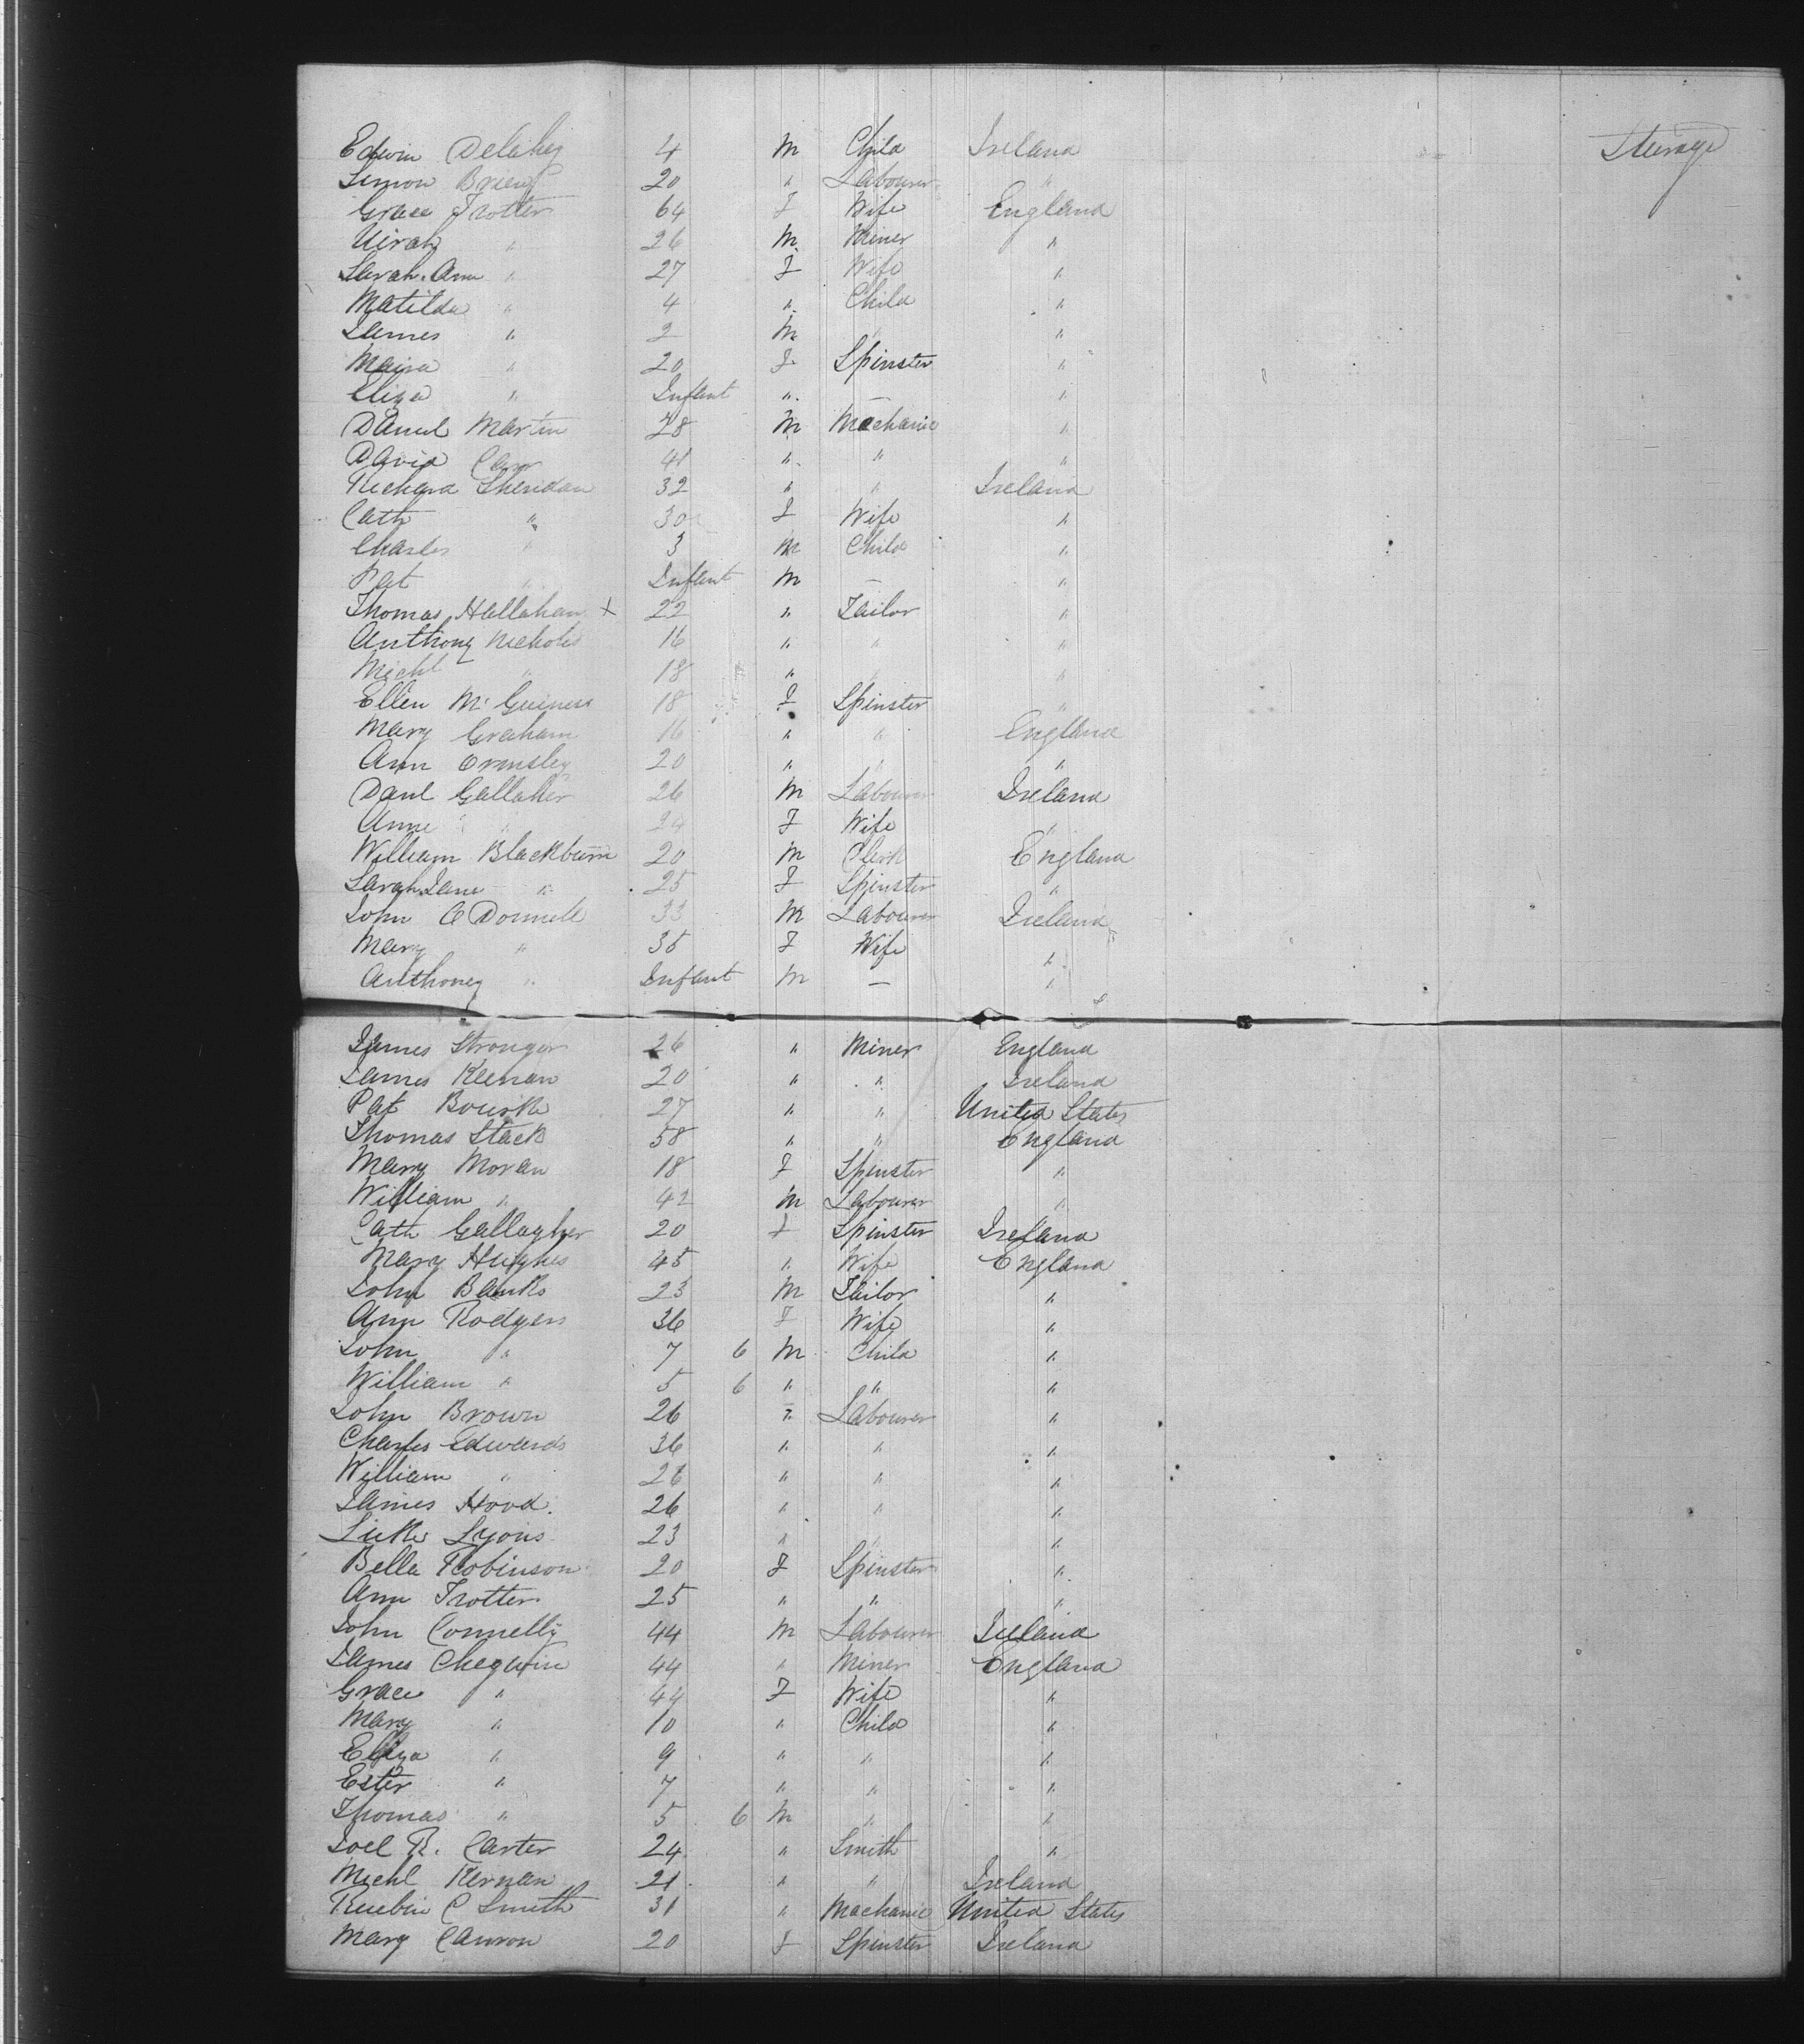 Edwin Delahey 4 M Child Ireland Steerage
Simon Brien 20 " Labourer "
Grace Trotter 64 F Wife England
" 26 M Miner "
Sarah Ann " 27 F Wife "
Matilda " 4 " Child "
James " 2 M " "
Maira " 20 F Spinster "
Eliza " Infant " — "
Daniel Martin 28 M Mechanic "
David Carr 41 " " "
Richard Sheridan 32 " " Ireland
Cath " 30 F Wife "
Charles " 3 M Child "
Pat " Infant M — "
Thomas Hallahan x 22 " Tailor "
Anthony Nichols 16 " " "
Michl " 18 " " "
Ellen McGuiness 18 F Spinster "
Mary Graham 16 " " England
Ann Ormsley 20 " " "
Danl Gallaher 26 M Labourer Ireland
Anne " 24 F Wife "
William Blackburn 20 M Clerk England
Sarah Jane " 25 F Spinster "
John O Donnell 33 M Labourer Ireland
Mary " 35 F Wife "
Anthoney " Infant M — "
James Stronger 26 " Miner England
James Keenan 20 " " Ireland
Pat Bourke 27 " " United States
Thomas Stack 58 " " England
Mary Moran 18 F Spinster "
William " 42 M Labourer "
Cath Gallagher 20 F Spinster Ireland
Mary Hughes 45 " Wife England
John Banks 23 M Tailor "
Ann Rodgers 36 F Wife "
John " 7 6 M Child "
William " 5 6 " " "
John Brown 26 " Labourer "
Charles Edwards 36 " " "
William " 26 " " "
James Hood 26 " " "
Luke Lyons 23 " " "
Bella Robinson 20 F Spinster "
Ann Trotter 25 " " "
John Connelly 44 M Labourer Ireland
James Chegwin 44 " Miner England
Grace " 44 F Wife "
Mary " 10 " Child "
Eliza " 9 " " "
Ester " 7 " " "
Thomas " 5 6 M " "
Joel R. Carter 24 " Smith "
Michl Kernan 21 " " Ireland
Ruebin C Smith 31 " Machanic United States
Mary Cannon 20 F Spinster Ireland